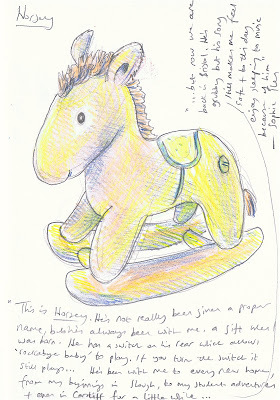 Horsey
"... but now we are
back in Bristol. He's
grubby but his song
still makes me feel
safe + to this day,
enjoy sleeping to music
because of him"
"This is Horsey. He's not really been given a proper
name, but he's always been with me. a gift when
was born. He has a switch on his rear which allows
'rockabye baby' to play. If you turn the switch it
still plays... He's been with me to every new home,
from my beginnings in Slough, to my student adventures
+ even in Cardiff for a little while ...